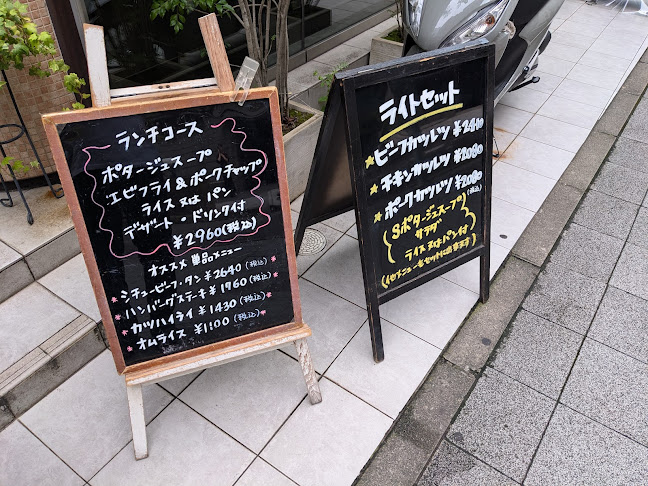 ランチコース
ポタージュスープ
エビフライ&ポークチャップ
ライス又はパン
デザート・ドリンク付
¥2960(税込)
オススメ 単品メニュー
シチュービーフ・タン ¥2640(税込)
ハンバーグステーキ ¥1760(税込)
カツハイライ ¥1430(税込)
オムライス ¥1100(税込)
ライトセット
ビーフカツレツ ¥2410
チキンカツレツ ¥2080
ポークカツレツ ¥2080
(税込)
Sポタージュスープ
サラダ
ライス又はパン付